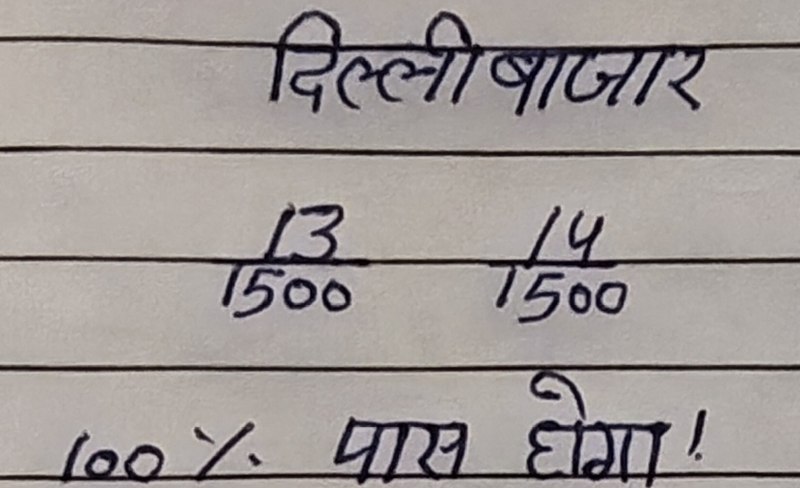 दिल्ली बाजार
13/1500 14/1500
100% पास होगा!